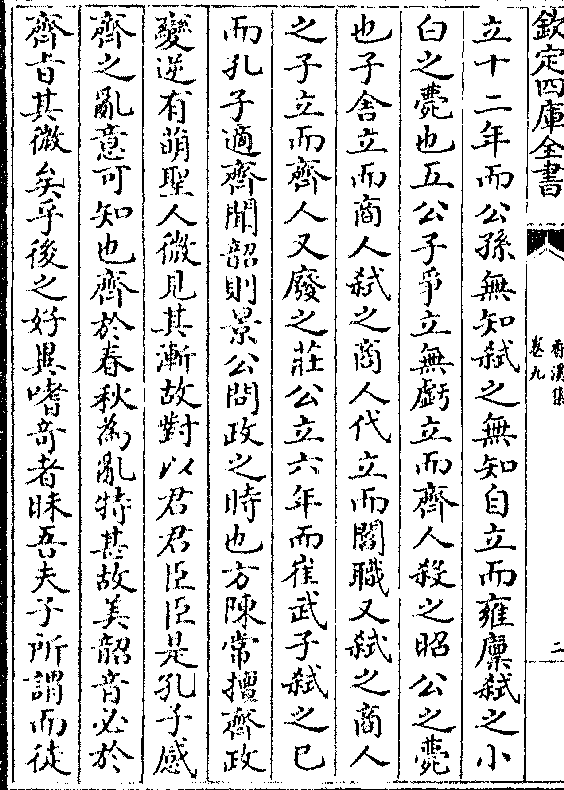 欽定四庫全書
香溪集
卷九
二
立十二年而公孫無知弑之無知自立而雍廩弑之小
白之薨也五公子爭立無虧立而齊人殺之昭公之薨
也子舍立而商人弑之商人代立而閻職又弑之商人
之子立而齊人又廢之莊公立六年而崔武子弑之已
而孔子適齊聞韶則景公問政之時也方陳常擅齊政
變逆有萌聖人微見其漸故對以君君臣臣是孔子感
齊之亂意可知也齊於春秋為亂特甚故美韶音必於
齊㫖其微矣乎後之好異嗜竒者昧吾夫子所謂而徒